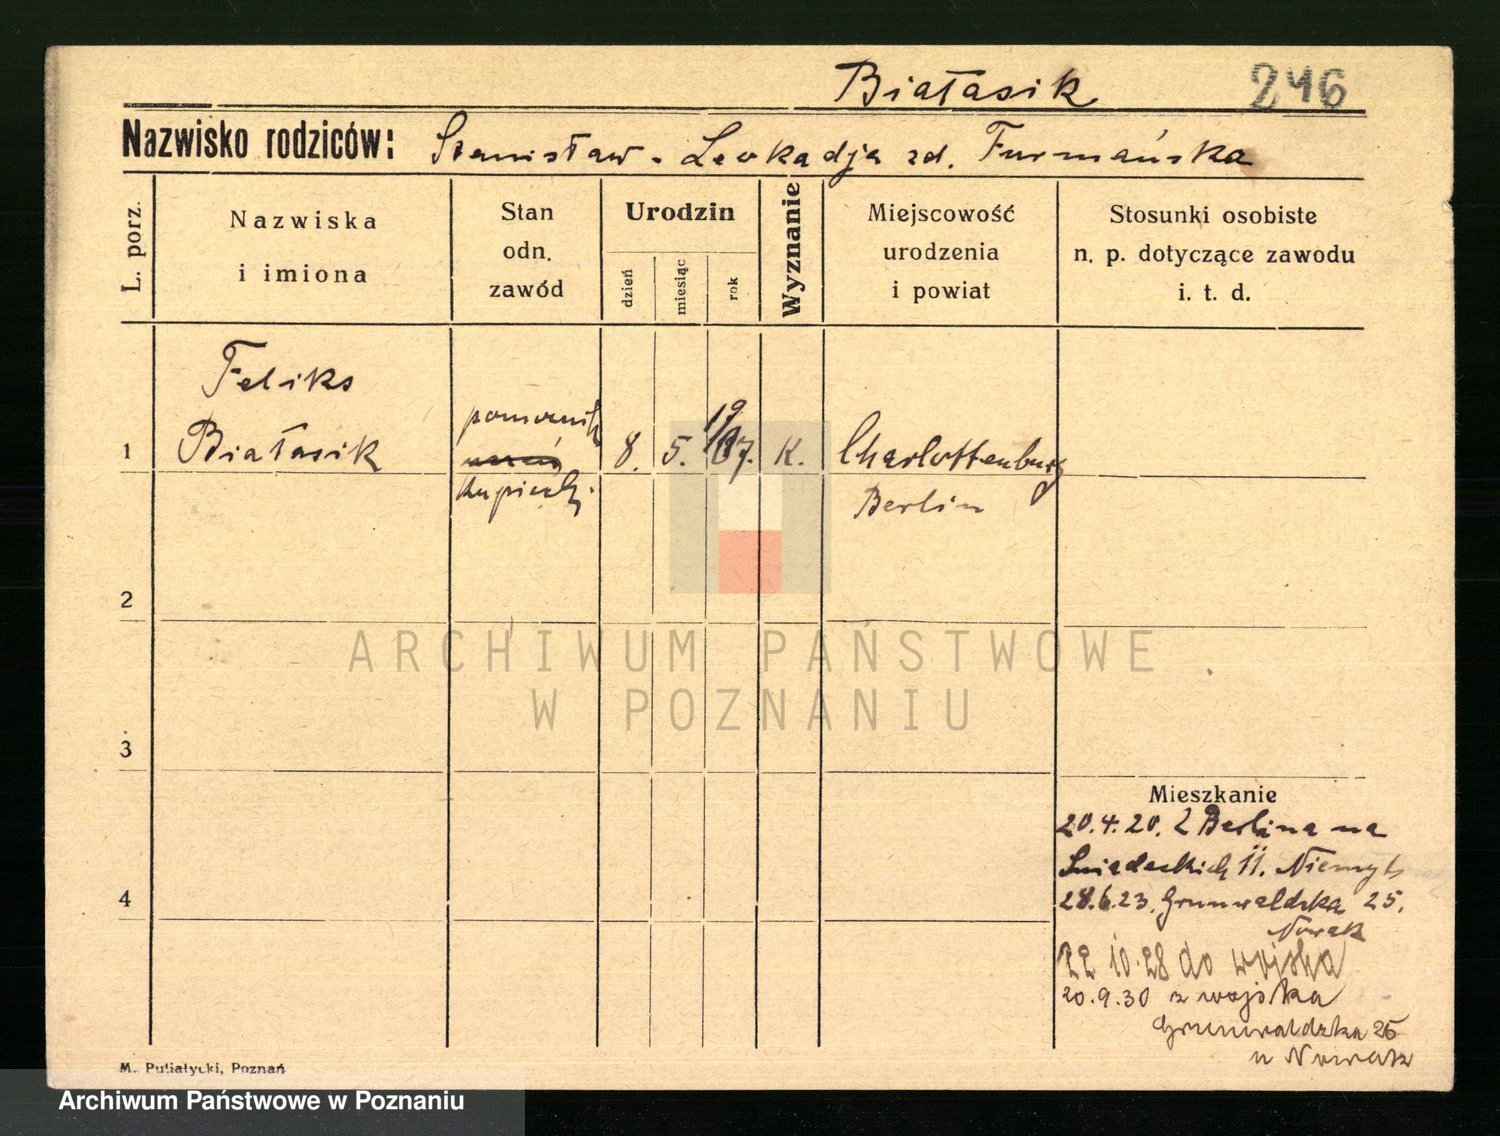 Białasik 246
Nazwisko rodziców: Stanisław - Leokadja zd. Furmańska
L. porz.
Nazwiska
i imiona
Stan
odn.
zawód
Urodzin
dzień
miesiąc
rok
Wyznanie
Miejscowość
urodzenia
i powiat
Stosunki osobiste
n. p. dotyczące zawodu
i. t. d.
Feliks
1 Białasik
pomocnik
kupiecki.
8. 5. 1907. K.
Charlottenburg
Berlin
2
3
4
Mieszkanie
20.4.20. Z Berlina na
Śniadeckich 11.
28.6.23. Grunwaldzka 25.
Nowak
22 10.28 do wojska
20.9.30 z wojska
Grunwaldzka 25
u Nowak
M. Putiatycki, Poznań
ARCHIWUM PAŃSTWOWE
W POZNANIU
Archiwum Państwowe w Poznaniu